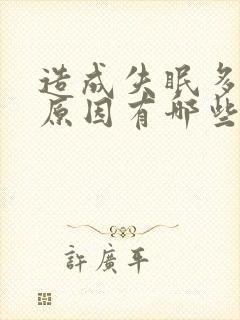 造成失眠多
原因有哪些
許廣平